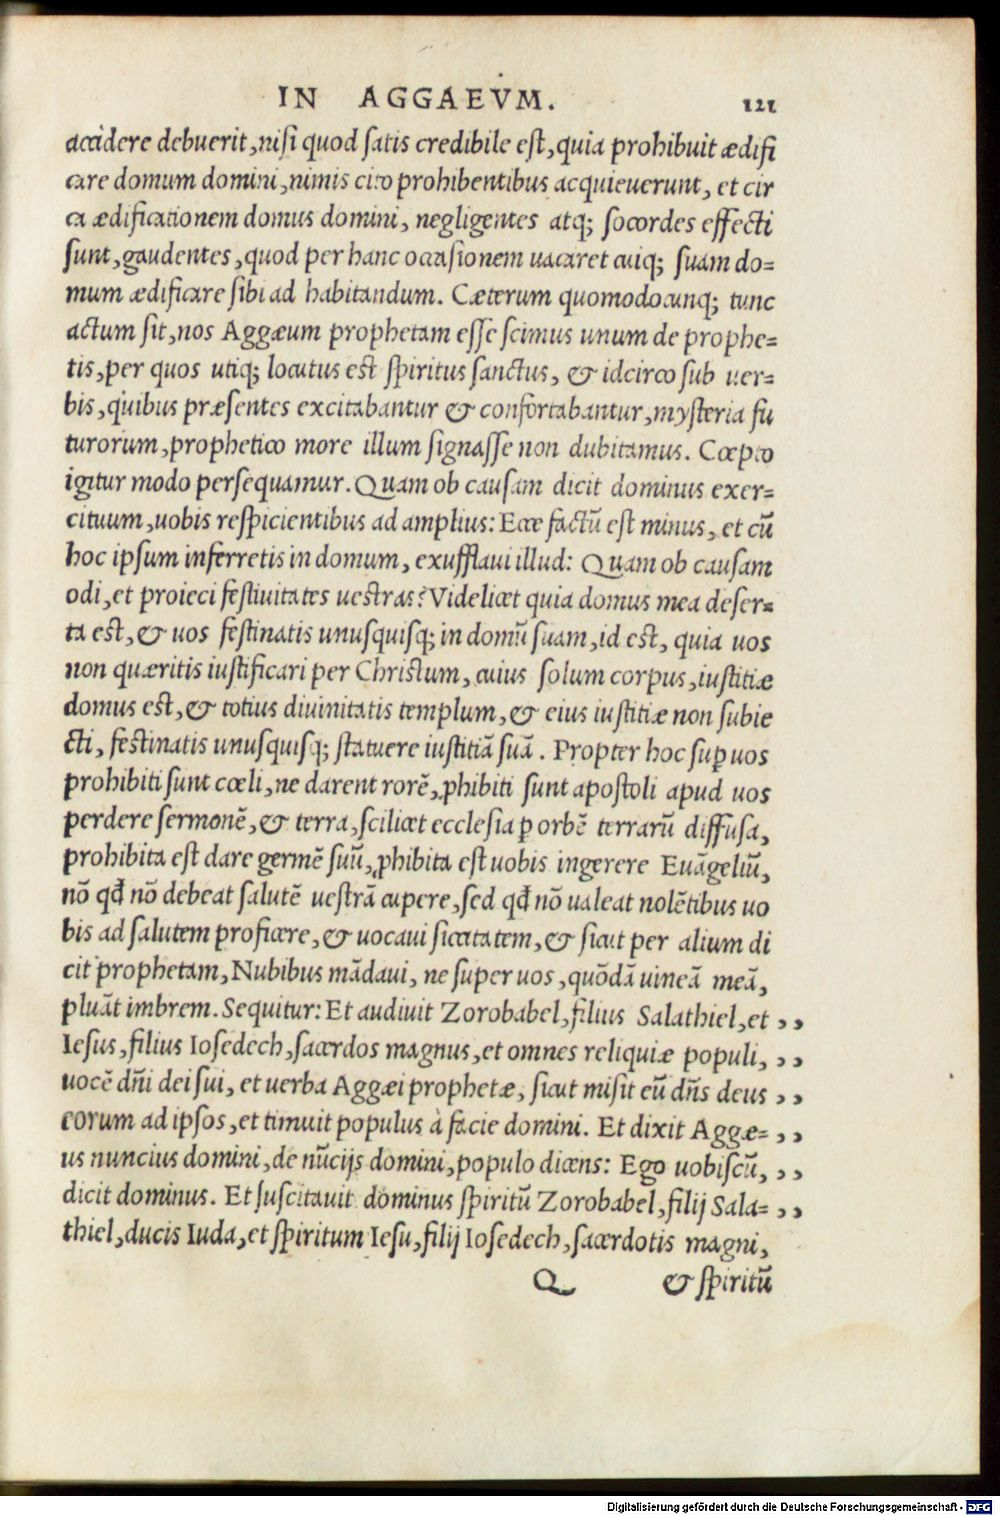 IN AGGAEVM. 121
accidere debuerit, nisi quod satis credibile est, quia prohibuit ædifi
care domum domini, nimis cito prohibentibus acquieuerunt, et cir
ca ædificationem domus domini, negligentes atq; socordes effecti
sunt, gaudentes, quod per hanc occasionem uacaret cuiq; suam do=
mum ædificare sibi ad habitandum. Cæterum quomodocunq; tunc
actum sit, nos Aggæum prophetam esse scimus unum de prophe=
tis, per quos utiq; locutus est spiritus sanctus, & idcirco sub uer=
bis, quibus præsentes excitabantur & confortabantur, mysteria fu
turorum, prophetico more illum signasse non dubitamus. Cœpto
igitur modo persequamur. Quam ob causam dicit dominus exer=
cituum, uobis respicientibus ad amplius: Ecce factũ est minus, et cũ
hoc ipsum inferretis in domum, exufflaui illud: Quam ob causam
odi, et proieci festiuitates uestras? Videlicet quia domus mea deser=
ta est, & uos festinatis unusquisq; in domũ suam, id est, quia uos
non quæritis iustificari per Christum, cuius solum corpus, iustitiæ
domus est, & totius diuinitatis templum, & eius iustitiæ non subie
cti, festinatis unusquisq; statuere iustitiã suã. Propter hoc sup̱ uos
prohibiti sunt cœli, ne darent rorẽ, ꝓhibiti sunt apostoli apud uos
perdere sermonẽ, & terra, scilicet ecclesia ꝑ orbẽ terrarũ diffusa,
prohibita est dare germẽ suũ, ꝓhibita est uobis ingerere Euãgeliũ,
nõ qđ nõ debeat salutẽ uestrã cupere, sed qđ nõ ualeat nolẽtibus uo
bis ad salutem proficere, & uocaui siccitatem, & sicut per alium di
cit prophetam, Nubibus mãdaui, ne super uos, quõdã uineã meã,
pluãt imbrem. Sequitur: Et audiuit Zorobabel, filius Salathiel, et ,,
Iesus, filius Iosedech, sacerdos magnus, et omnes reliquiæ populi, ,,
uocẽ dñi dei sui, et uerba Aggæi prophetæ, sicut misit eũ dñs deus ,,
eorum ad ipsos, et timuit populus à facie domini. Et dixit Aggæ= ,,
us nuncius domini, de nũcijs domini, populo dicens: Ego uobiscũ, ,,
dicit dominus. Et suscitauit dominus spiritũ Zorobabel, filij Sala= ,,
thiel, ducis Iuda, et spiritum Iesu, filij Iosedech, sacerdotis magni,
Q & spiritũ
Digitalisierung gefördert durch die Deutsche Forschungsgemeinschaft - DFG